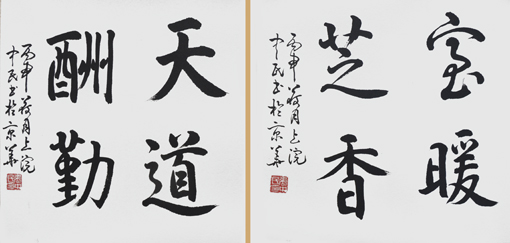 天道
酬勤
丙申荷月上浣
中民书于京华
室暖
芝香
丙申荷月上浣
中民书于京华